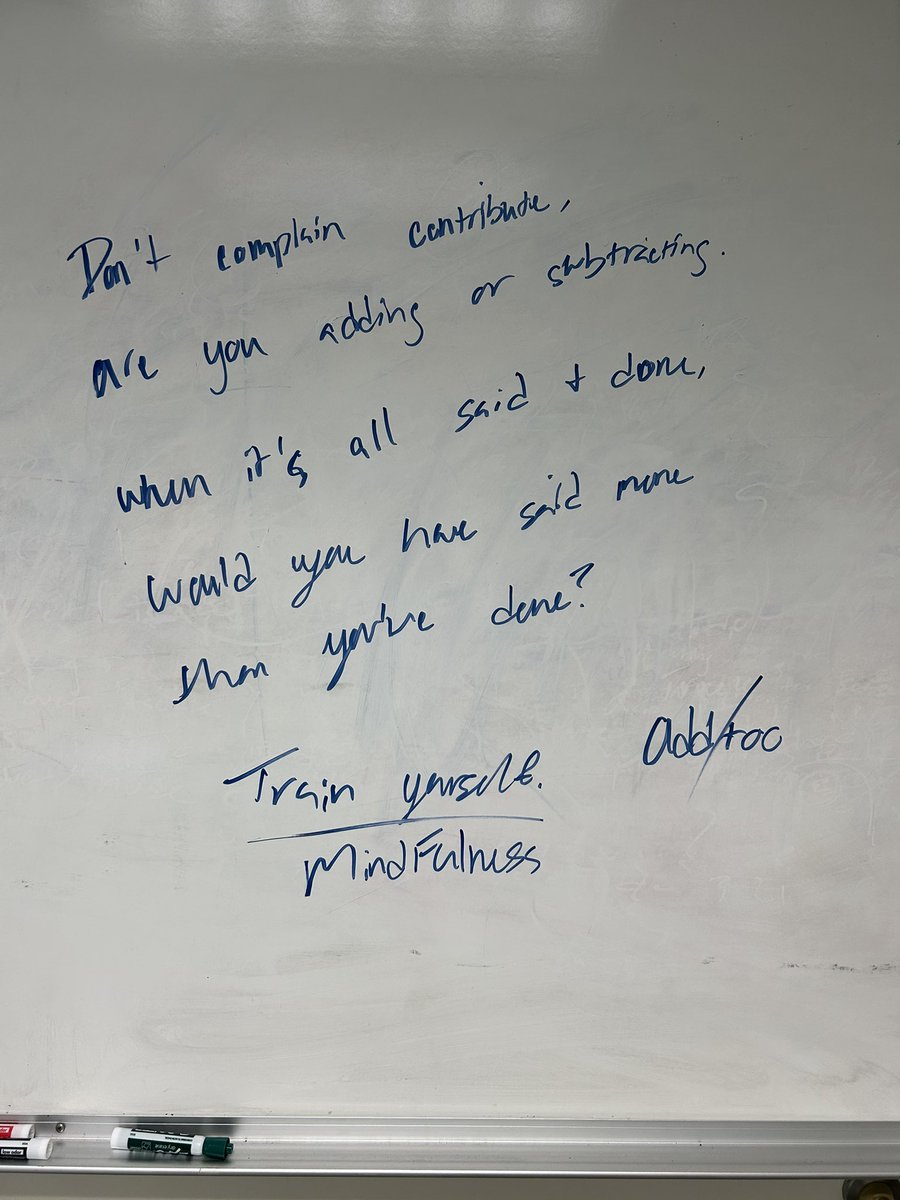 Don't complain contribute,
are you adding or subtracting.
when it's all said + done,
would you have said more
than you've done?
Train yourself.
add/too
MindFulness